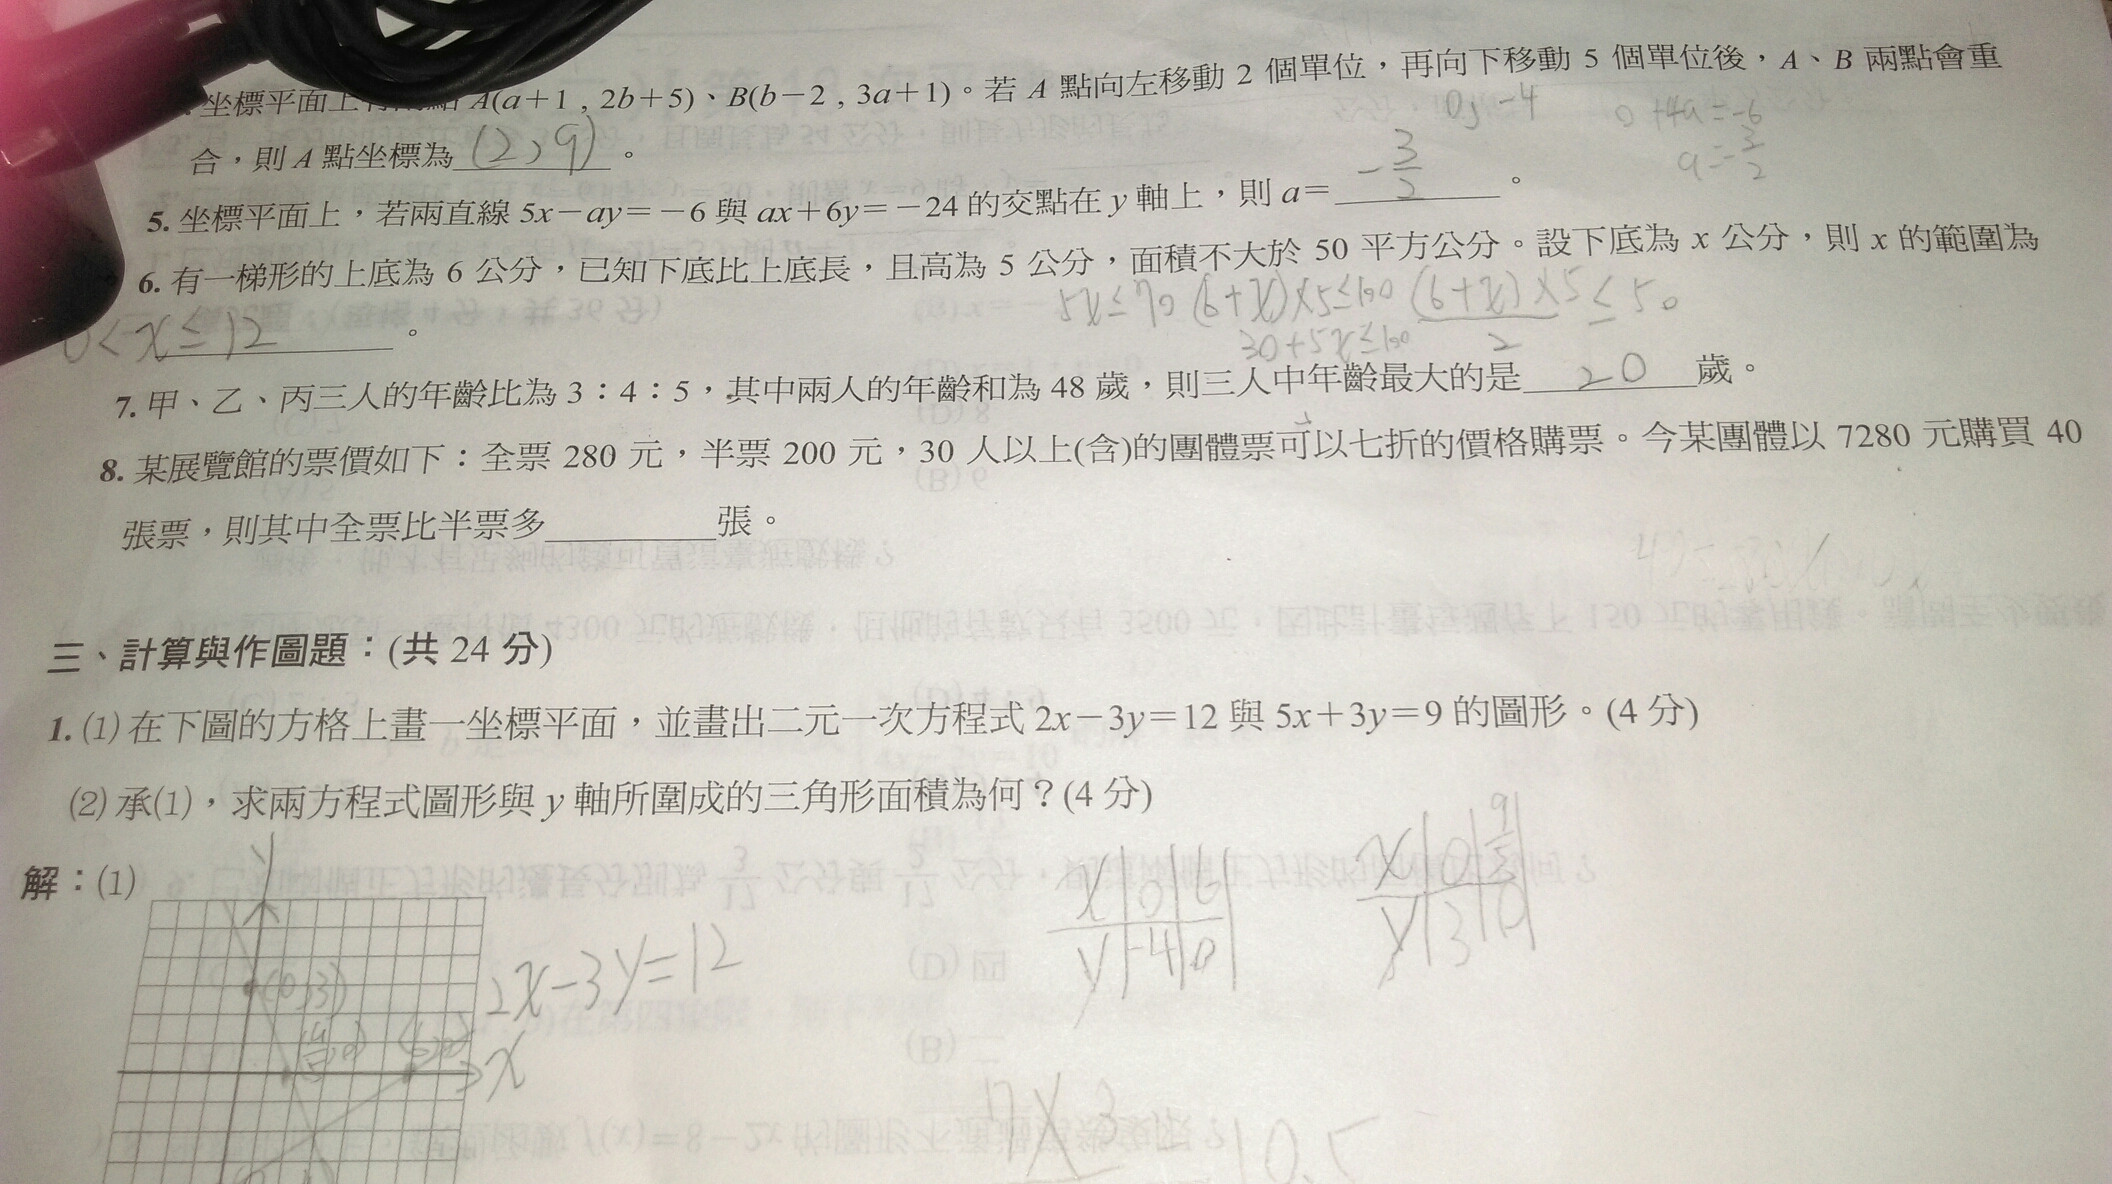 坐標平面上有兩點 A(a+1 , 2b+5)、B(b-2 , 3a+1)。若 A 點向左移動 2 個單位，再向下移動 5 個單位後，A、B 兩點會重
合，則 A 點坐標為 (2,9) 。
0, -4
0+4a=-6
a=-3/2
5. 坐標平面上，若兩直線 5x-ay=-6 與 ax+6y=-24 的交點在 y 軸上，則 a= -3/2 。
6. 有一梯形的上底為 6 公分，已知下底比上底長，且高為 5 公分，面積不大於 50 平方公分。設下底為 x 公分，則 x 的範圍為
<x≤12 。
5x≤70 (6+x)×5≤100 (6+x)×5/2 ≤50
30+5x≤100
7. 甲、乙、丙三人的年齡比為 3：4：5，其中兩人的年齡和為 48 歲，則三人中年齡最大的是 20 歲。
8. 某展覽館的票價如下：全票 280 元，半票 200 元，30 人以上(含)的團體票可以七折的價格購票。今某團體以 7280 元購買 40
張票，則其中全票比半票多________張。
三、計算與作圖題：(共 24 分)
1. (1) 在下圖的方格上畫一坐標平面，並畫出二元一次方程式 2x-3y=12 與 5x+3y=9 的圖形。(4 分)
(2) 承(1)，求兩方程式圖形與 y 軸所圍成的三角形面積為何？(4 分)
解：(1)
y
x 0 6
y -4 0
x 0 9/5
y 3 0
2x-3y=12
(0,3)
x
7×3
10.5